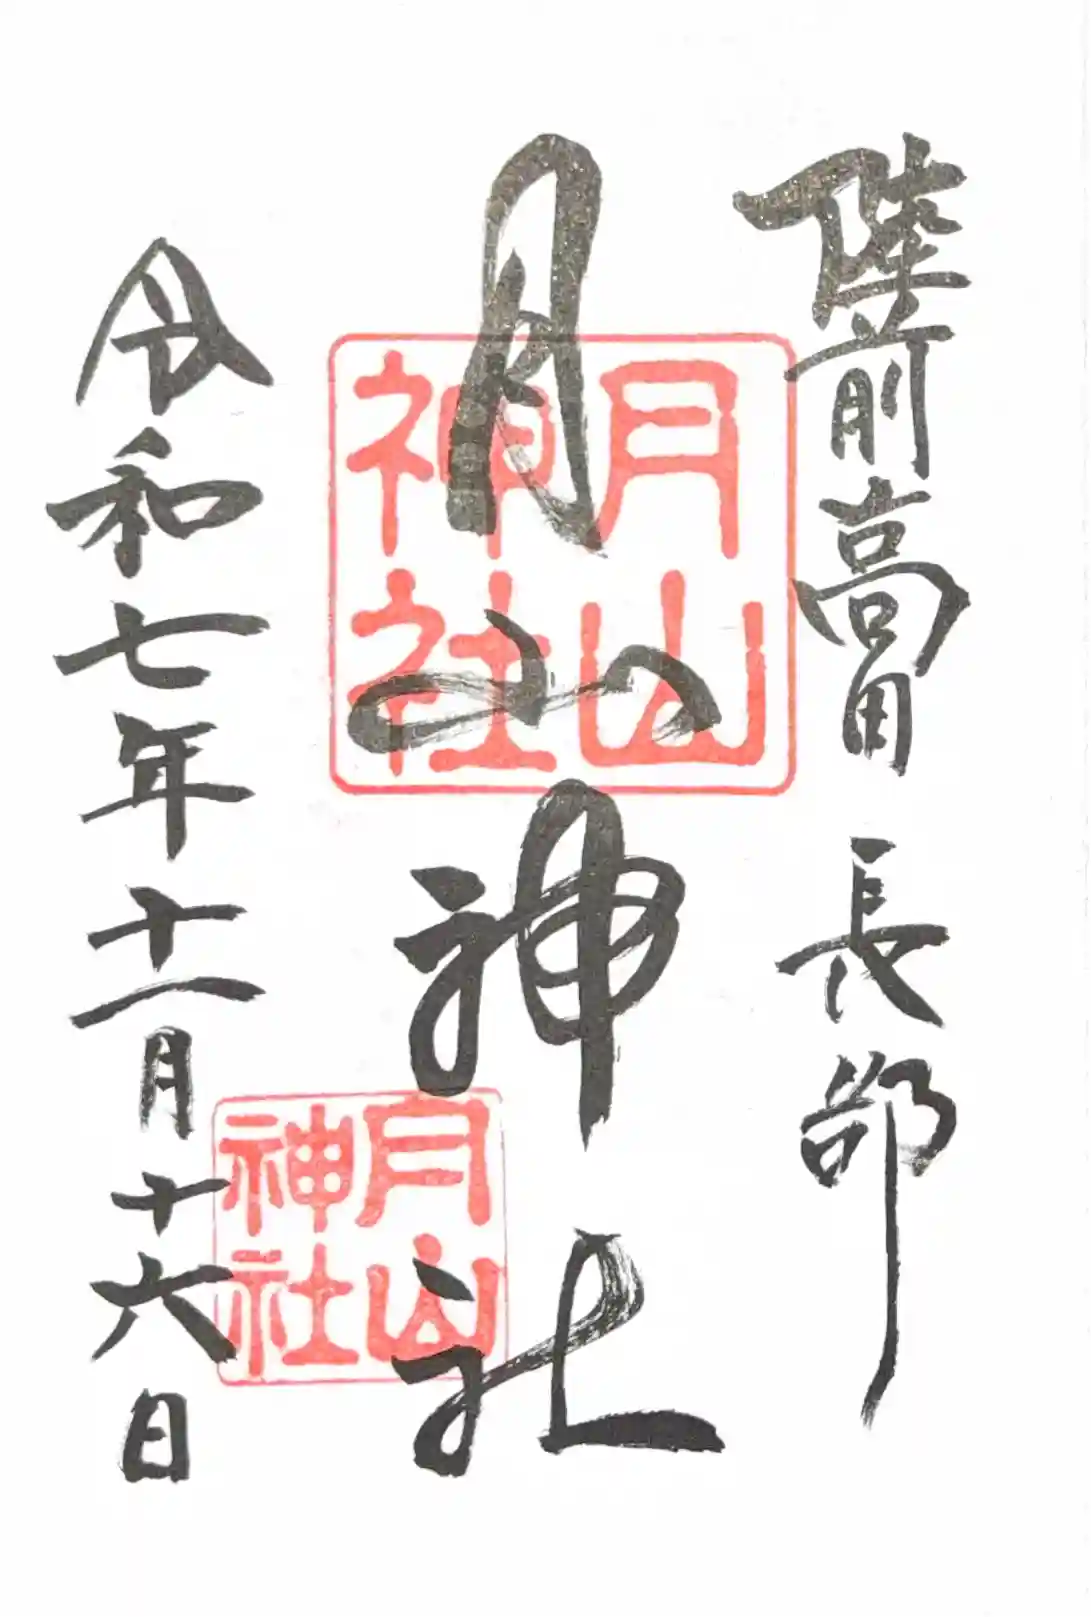 陸前高田 長部
月山神社
月山神社
月山神社
令和七年十一月十六日